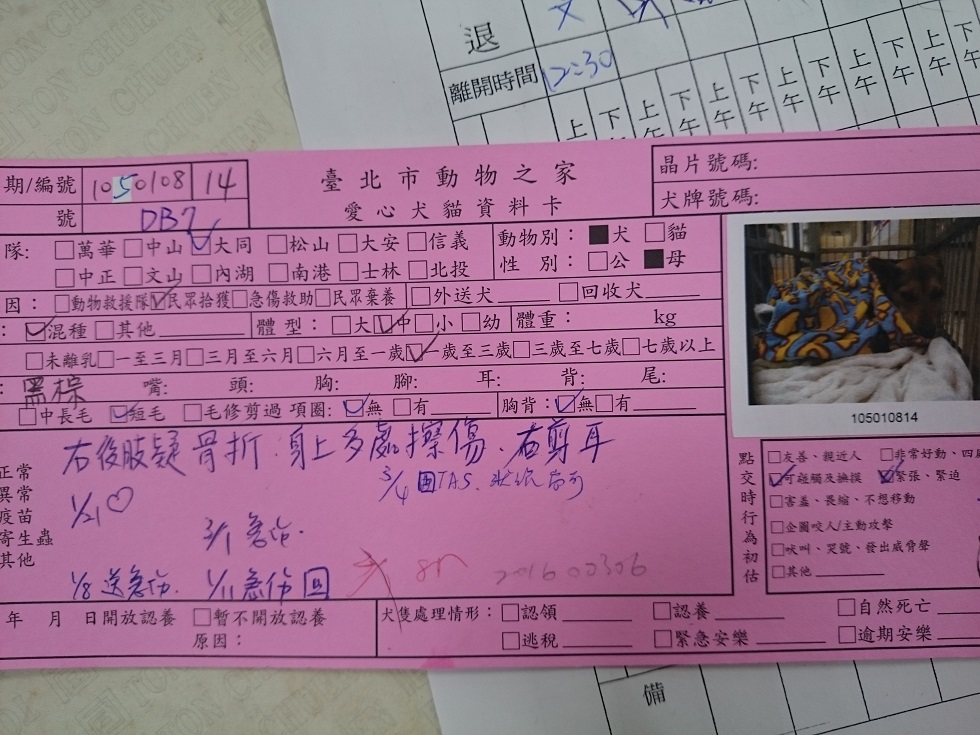 退
離開時間 12:30
上午 下午 上午 下午 上午 下午 上午 下午 上午 下午 上午
臺北市動物之家
愛心犬貓資料卡
期/編號 1050108 14
號
晶片號碼:
犬牌號碼:
隊: □萬華 ☑大同 □中山 □松山 □大安 □信義
□中正 □文山 □內湖 □南港 □士林 □北投
動物別: ■犬 □貓
性 別: □公 ■母
因: □動物救援隊 ☑民眾拾獲 □急傷救助 □民眾棄養 □外送犬 □回收犬
: ☑混種 □其他 體 型: □大 ☑中 □小 □幼 體重: kg
□未離乳 □一至三月 □三月至六月 □六月至一歲 ☑一歲至三歲 □三歲至七歲 □七歲以上
: 黑棕 嘴: 頭: 胸: 腳: 耳: 背: 尾:
□中長毛 ☑短毛 □毛修剪過 項圈: ☑無 □有 胸背: ☑無 □有
105010814
正常
異常
疫苗
寄生蟲
其他
右後肢疑骨折.身上多處擦傷.右剪耳
1/21♡
3/1 急傷.
1/8 送急傷. 1/11 急傷回
點交時行為初估
□友善、親近人 □非常好動、四
☑可碰觸及撫摸 ☑緊張、緊迫
□害羞、畏縮、不想移動
□企圖咬人/主動攻擊
□吠叫、哭號、發出威脅聲
□其他
年 月 日開放認養 □暫不開放認養
原因:
犬隻處理情形: □認領 □認養 □自然死亡
□逃脫 □緊急安樂 □逾期安樂
備